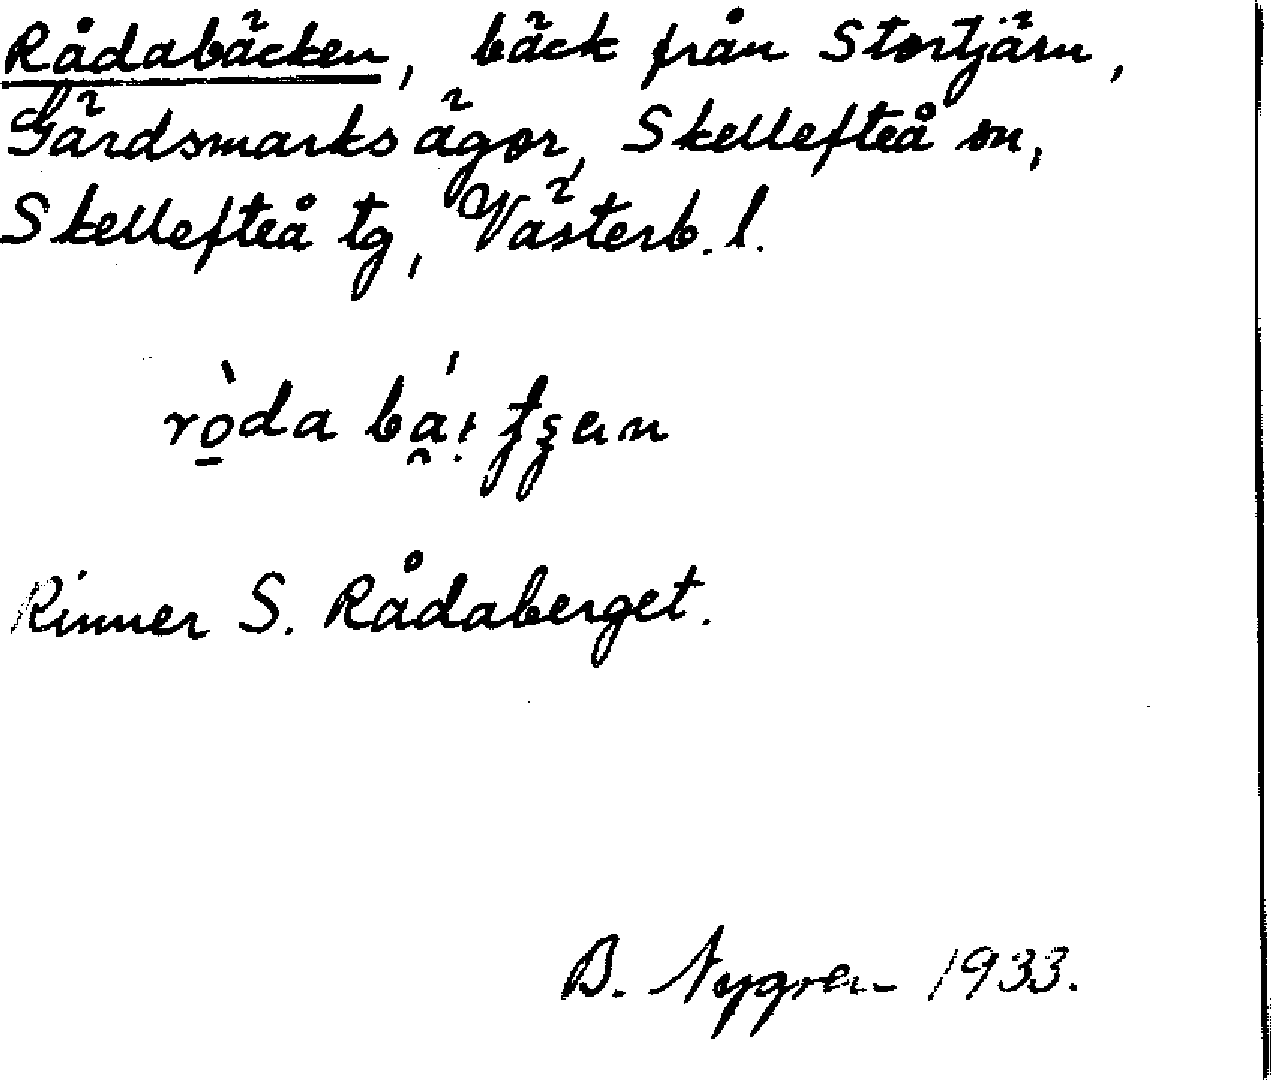 Rådabäcken, bäck från Stortjärn,
Gärdsmarks ägor, Skellefteå sn,
Skellefteå tg, Västerb. l.
Rinner S. Rådaberget.
B. Nygren 1933.